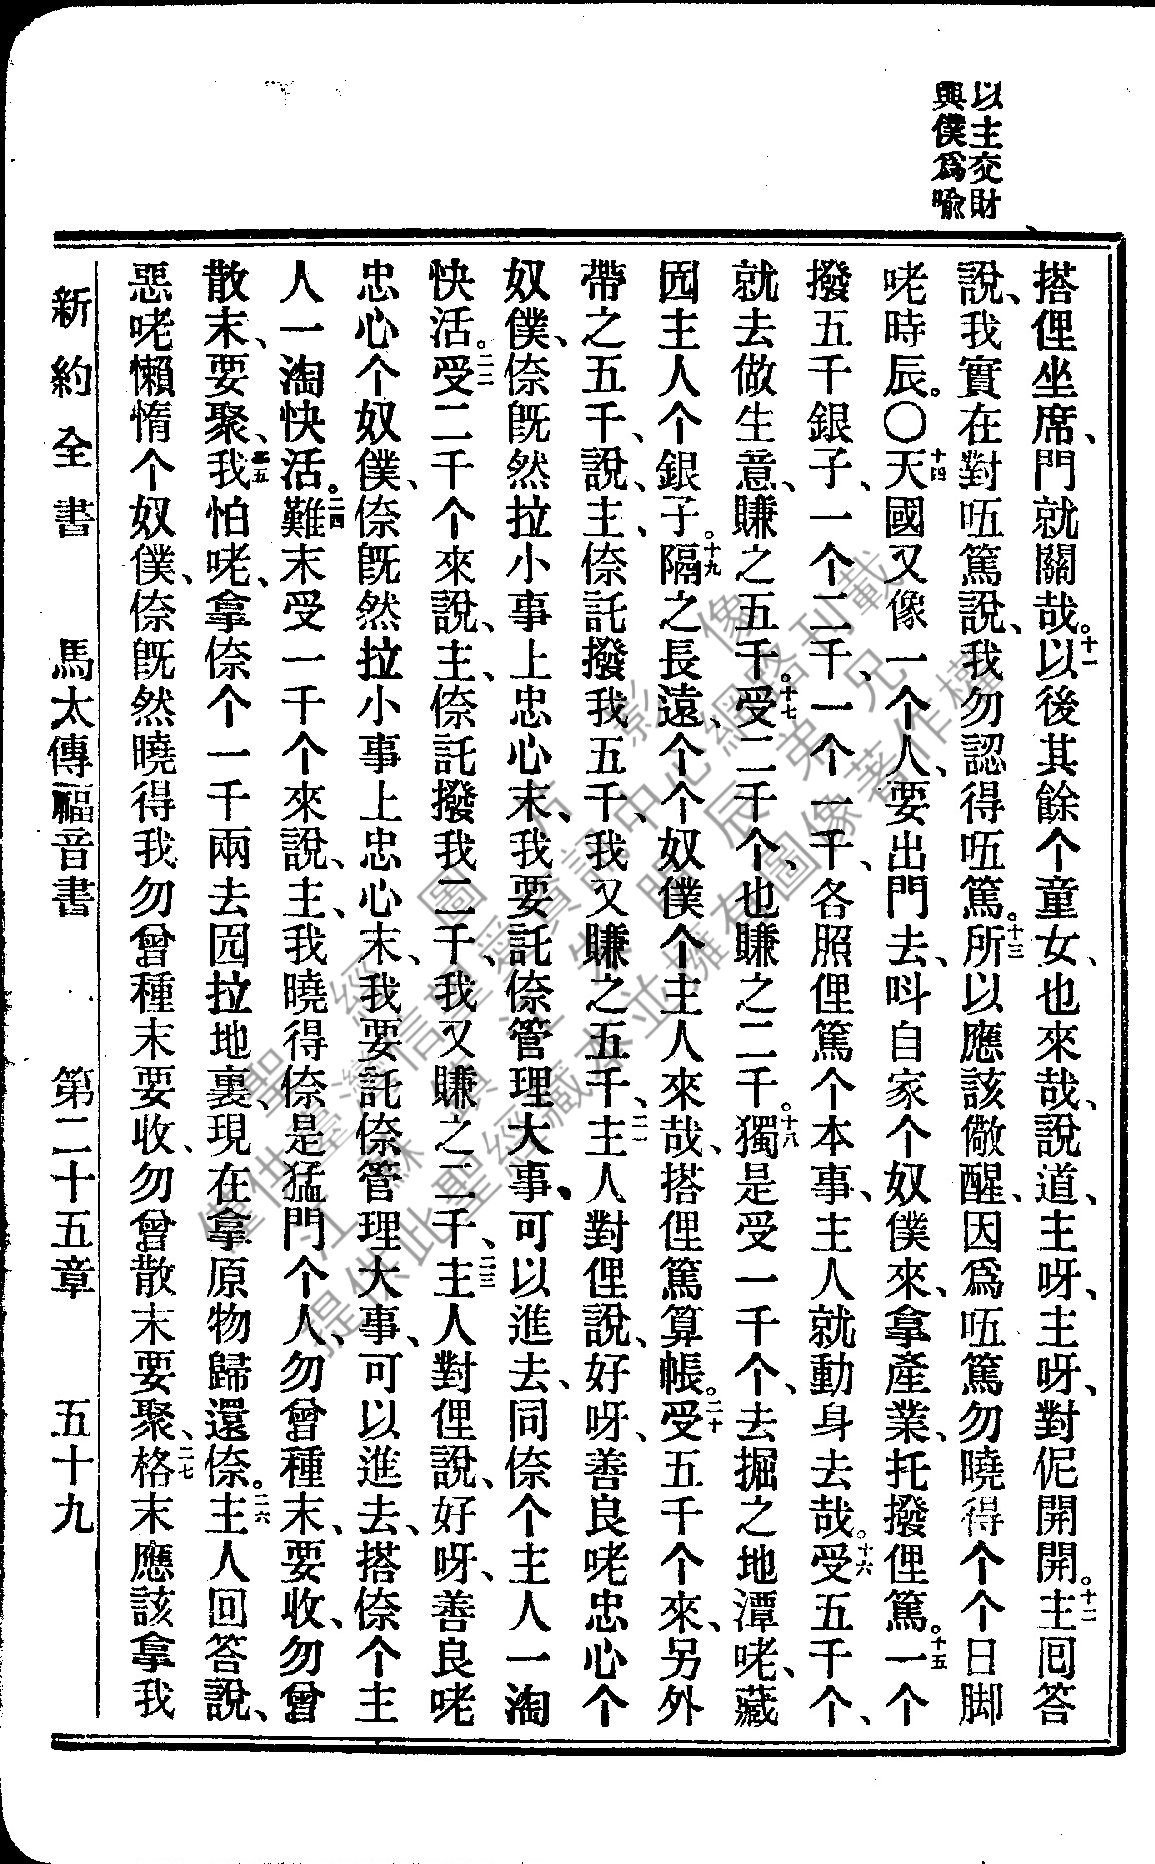 以主交財
與僕爲喩
搭俚坐席、門就關哉。十一以後其餘个童女、也來哉、說道、主呀、主呀、對伲開開。十二主囘答
說、我實在對㕶篤說、我勿認得㕶篤。十三所以應該儆醒、因爲㕶篤勿曉得个个日脚
咾時辰。〇十四天國又像一个人、要出門去、呌自家个奴僕來、拿產業、托撥俚篤。十五一个
撥五千銀子、一个二千、一个一千、各照俚篤个本事、主人就動身去哉。十六受五千个、
就去做生意、賺之五千。十七受二千个、也賺之二千。十八獨是受一千个、去掘之地潭咾、藏
囥主人个銀子。十九隔之長遠、个个奴僕个主人來哉、搭俚篤算帳。二十受五千个來、另外
帶之五千、說、主、倷託撥我五千、我又賺之五千、二一主人對俚說、好呀、善良咾忠心个
奴僕、倷旣然拉小事上忠心末、我要託倷管理大事、可以進去、同倷个主人一淘
快活。二二受二千个來說、主、倷託撥我二千、我又賺之二千、二三主人對俚說、好呀、善良咾
忠心个奴僕、倷旣然拉小事上忠心末、我要託倷管理大事、可以進去、搭倷个主
人一淘快活。二四難末受一千个來說、主、我曉得倷是猛門个人、勿曾種末、要收、勿曾
散末、要聚、二五我怕咾、拿倷个一千兩去囥拉地裏、現在拿原物歸還倷。二六主人回答說、
惡咾懶惰个奴僕、倷旣然曉得我勿曾種末要收、勿曾散末要聚、二七格末應該拿我
新約全書 馬太傳福音書 第二十五章 五十九
聖經圖片影像
僅供臺灣信望愛資訊中心網路刊載
江蘇鎮江朱曉辰弟兄
提供此聖經藏本並擁有圖像著作權